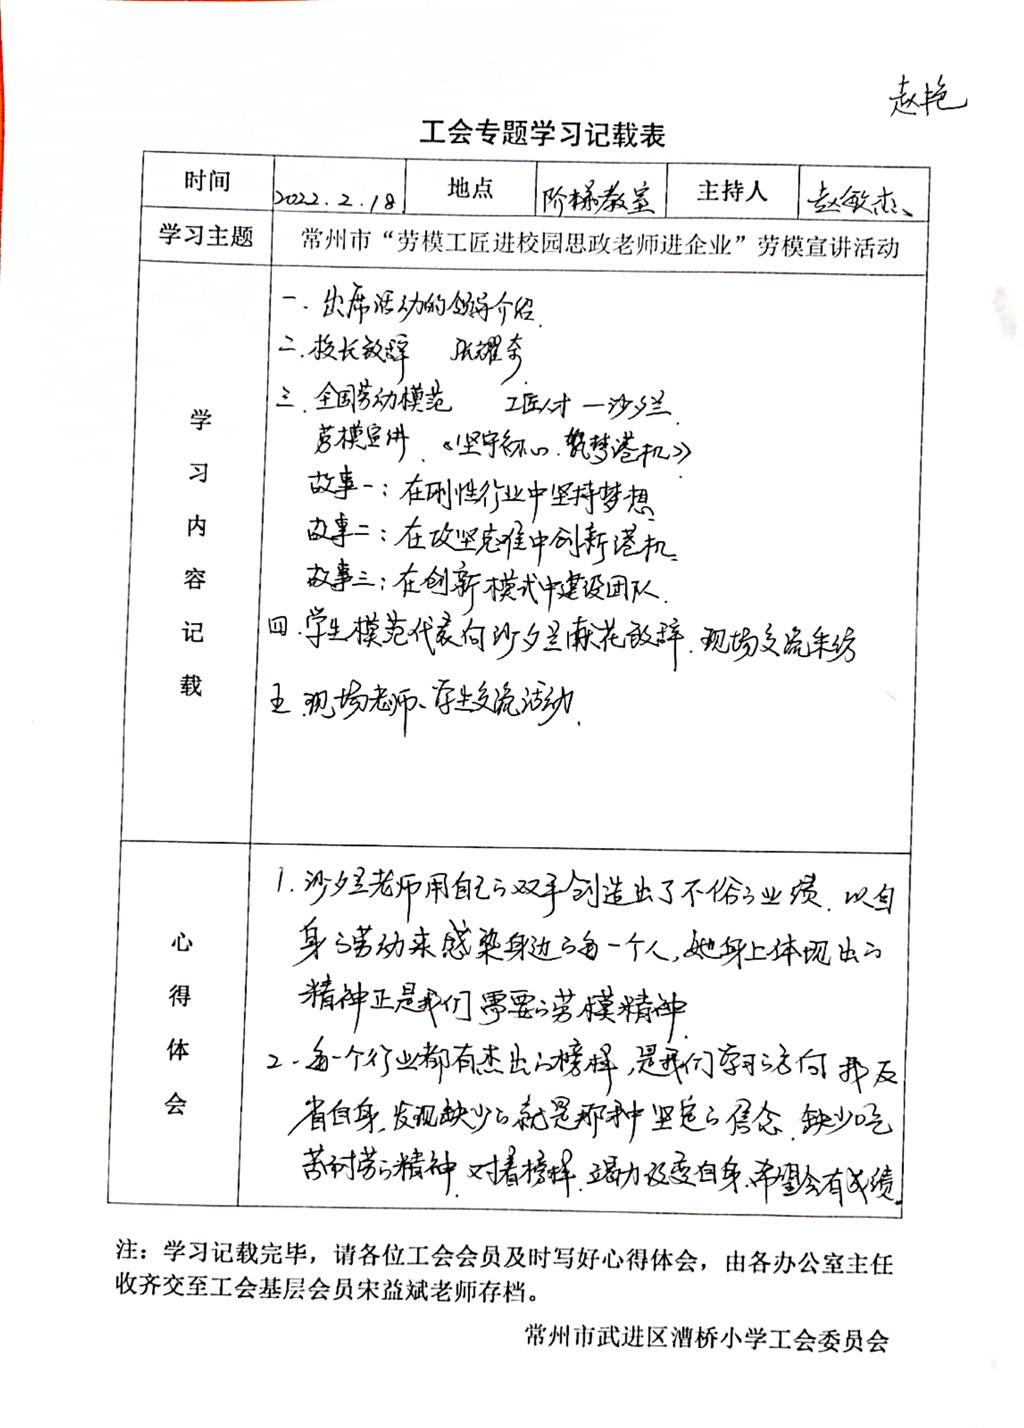 赵艳
工会专题学习记载表
时间 2022.2.18 地点 阶梯教室 主持人 赵敏杰
学习主题 常州市“劳模工匠进校园思政老师进企业”劳模宣讲活动
学习内容记载
一.出席活动的领导介绍.
二.校长致辞 张耀奇
三.全国劳动模范 工匠人才—沙夕兰.
劳模宣讲.《坚守初心.筑梦港机》
故事一:在刚性行业中坚持梦想.
故事二:在攻坚克难中创新港机.
故事三:在创新模式中建设团队.
四.学生模范代表向沙夕兰献花致辞.现场交流采访
五.现场老师、学生交流活动.
心得体会
1.沙夕兰老师用自己的双手创造出了不俗的业绩.以自
身的劳动来感染身边的每一个人,她身上体现出的
精神正是我们需要的劳模精神.
2.每一个行业都有杰出的榜样,是我们学习的方向 我反
省自身.发现缺少的就是那种坚定的信念.缺少吃
苦耐劳的精神.对着榜样.竭力改变自身.希望会有成绩.
注：学习记载完毕，请各位工会会员及时写好心得体会，由各办公室主任
收齐交至工会基层会员宋益斌老师存档。
常州市武进区漕桥小学工会委员会